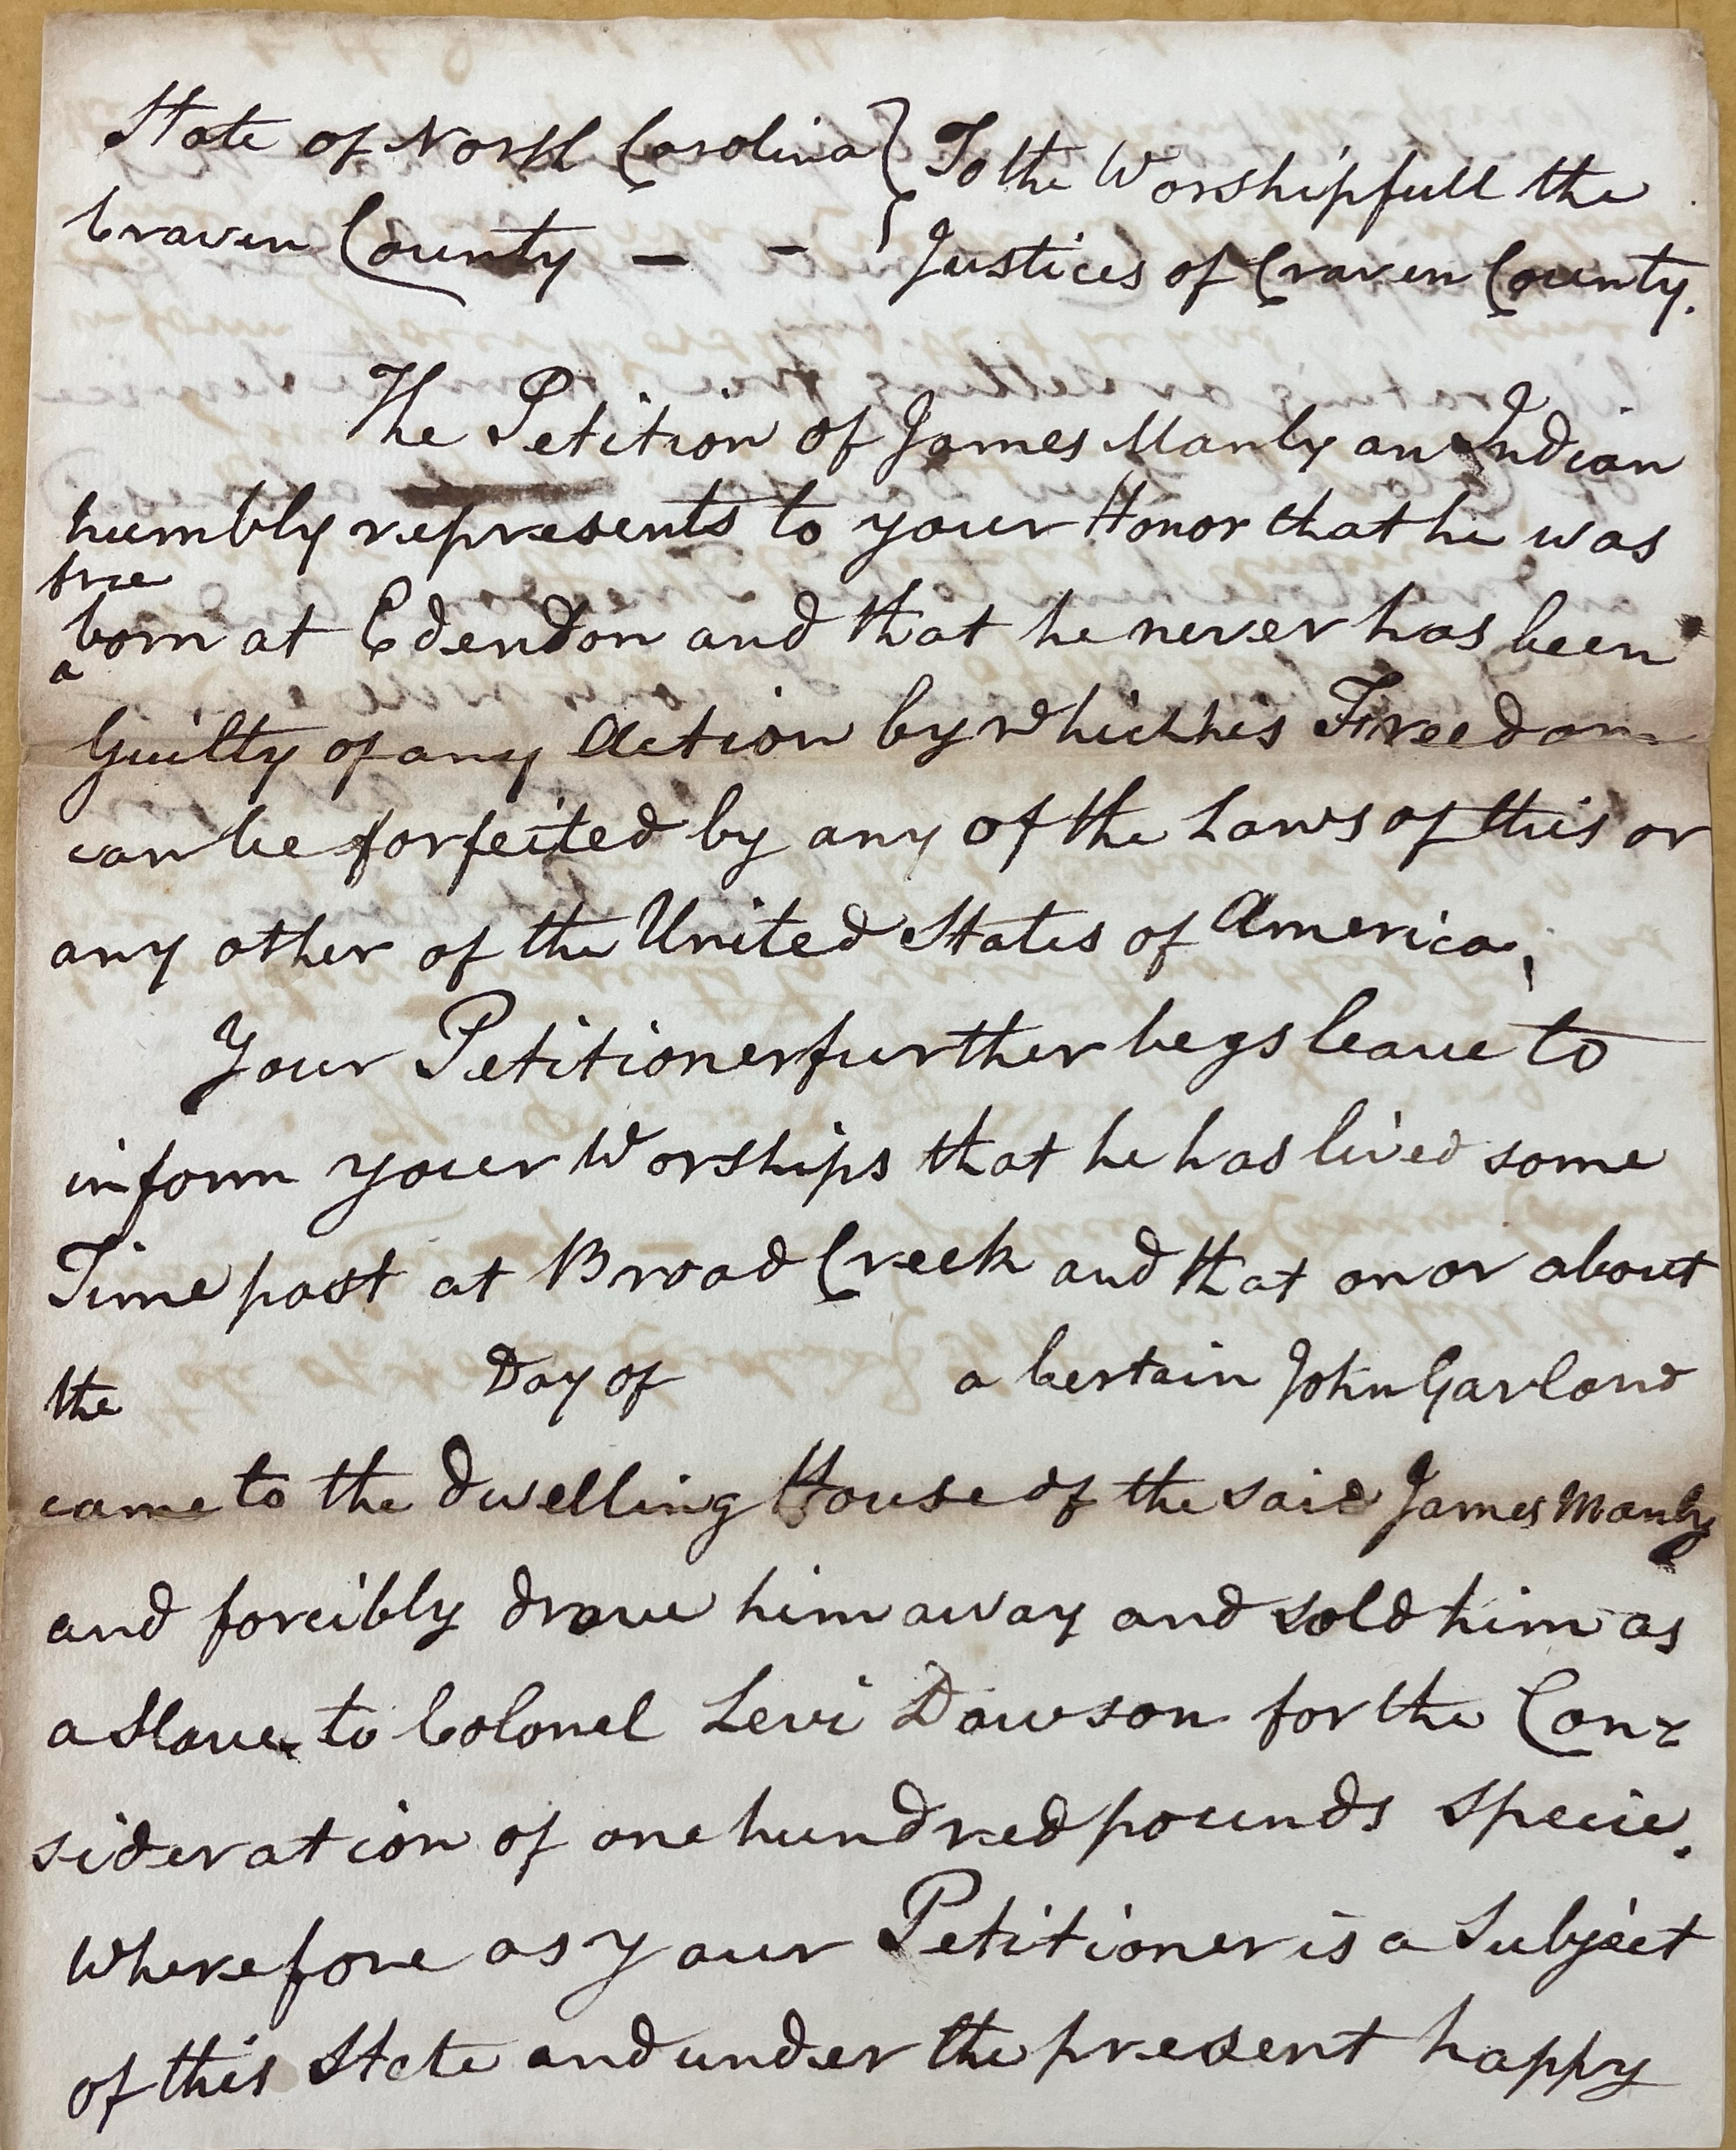 State of North Carolina } To the Worshipfull the
Craven County - - } Justices of Craven County.
The Petition of James Manly an Indian
humbly represents to your Honor that he was
free
born at Edendon and that he never has been
^
Guilty of any Action by which his Freedom
can be forfeited by any of the Laws of this or
any other of the United States of America,
Your Petitioner further begs leave to
inform your Worships that he has lived some
Time past at Broad Creek and that on or about
the Day of a Certain John Garland
came to the dwelling House of the said James Manly
and forcibly drove him away and sold him as
a Slave to Colonel Levi Dawson for the Con-
sideration of one hundred pounds Specie.
Wherefore as your Petitioner is a Subject
of this State and under the present happy